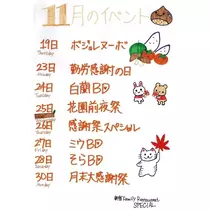 11月のイベント
19日 ボジョレヌーボ
Thursday
23日 勤労感謝の日
Monday
24日 白蘭BD
Tuesday
25日 花園前夜祭
26日 感謝祭スペシャル
Thursday
27日 ミウBD
Friday
28日 そらBD
Saturday
30日 月末大感謝祭
Monday
Family Restaurant
SPECIAL